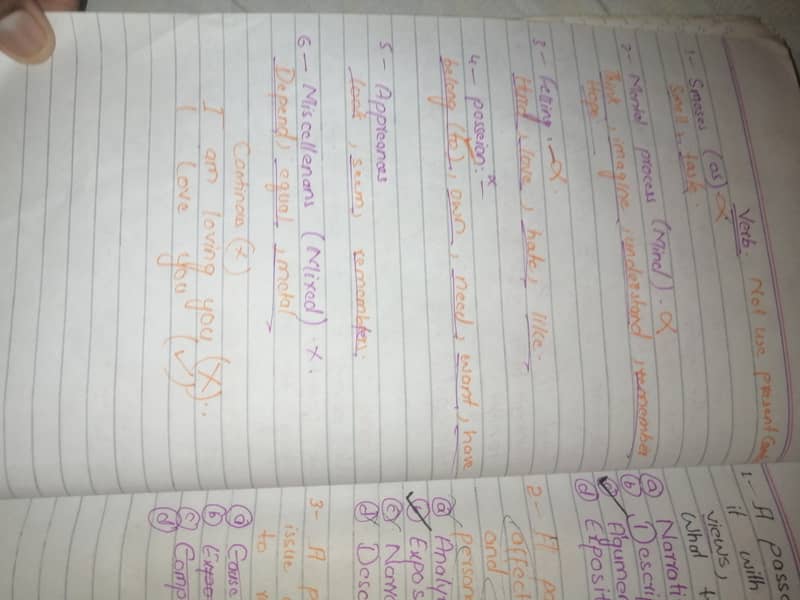 Verb. Not use present Con
1- Smeses (as) ∝
Smell, task.
2- Mental process (Mind). ∝
Think, imagine, understand, remember
Hope
3- Felling -∝.
Hind, love, hate, like.
4- posseion:- x
belong (to), own, need, want, have
5- Apprearances
look, seem, remember.
6- Miscellenans (Mixed). x.
Depend, equal, metal
Continous (x)
I am loving you (X).
I Love you (✓)
1- A passa
it with
views,
what t
a Narrati
b Descrip
Agumen
d Exposit
2- A pa
affect
person
and
a Analy
Expos
c Narra
d Desc
3- A p
issue
to
a Cause
b Expo
c Comp
d